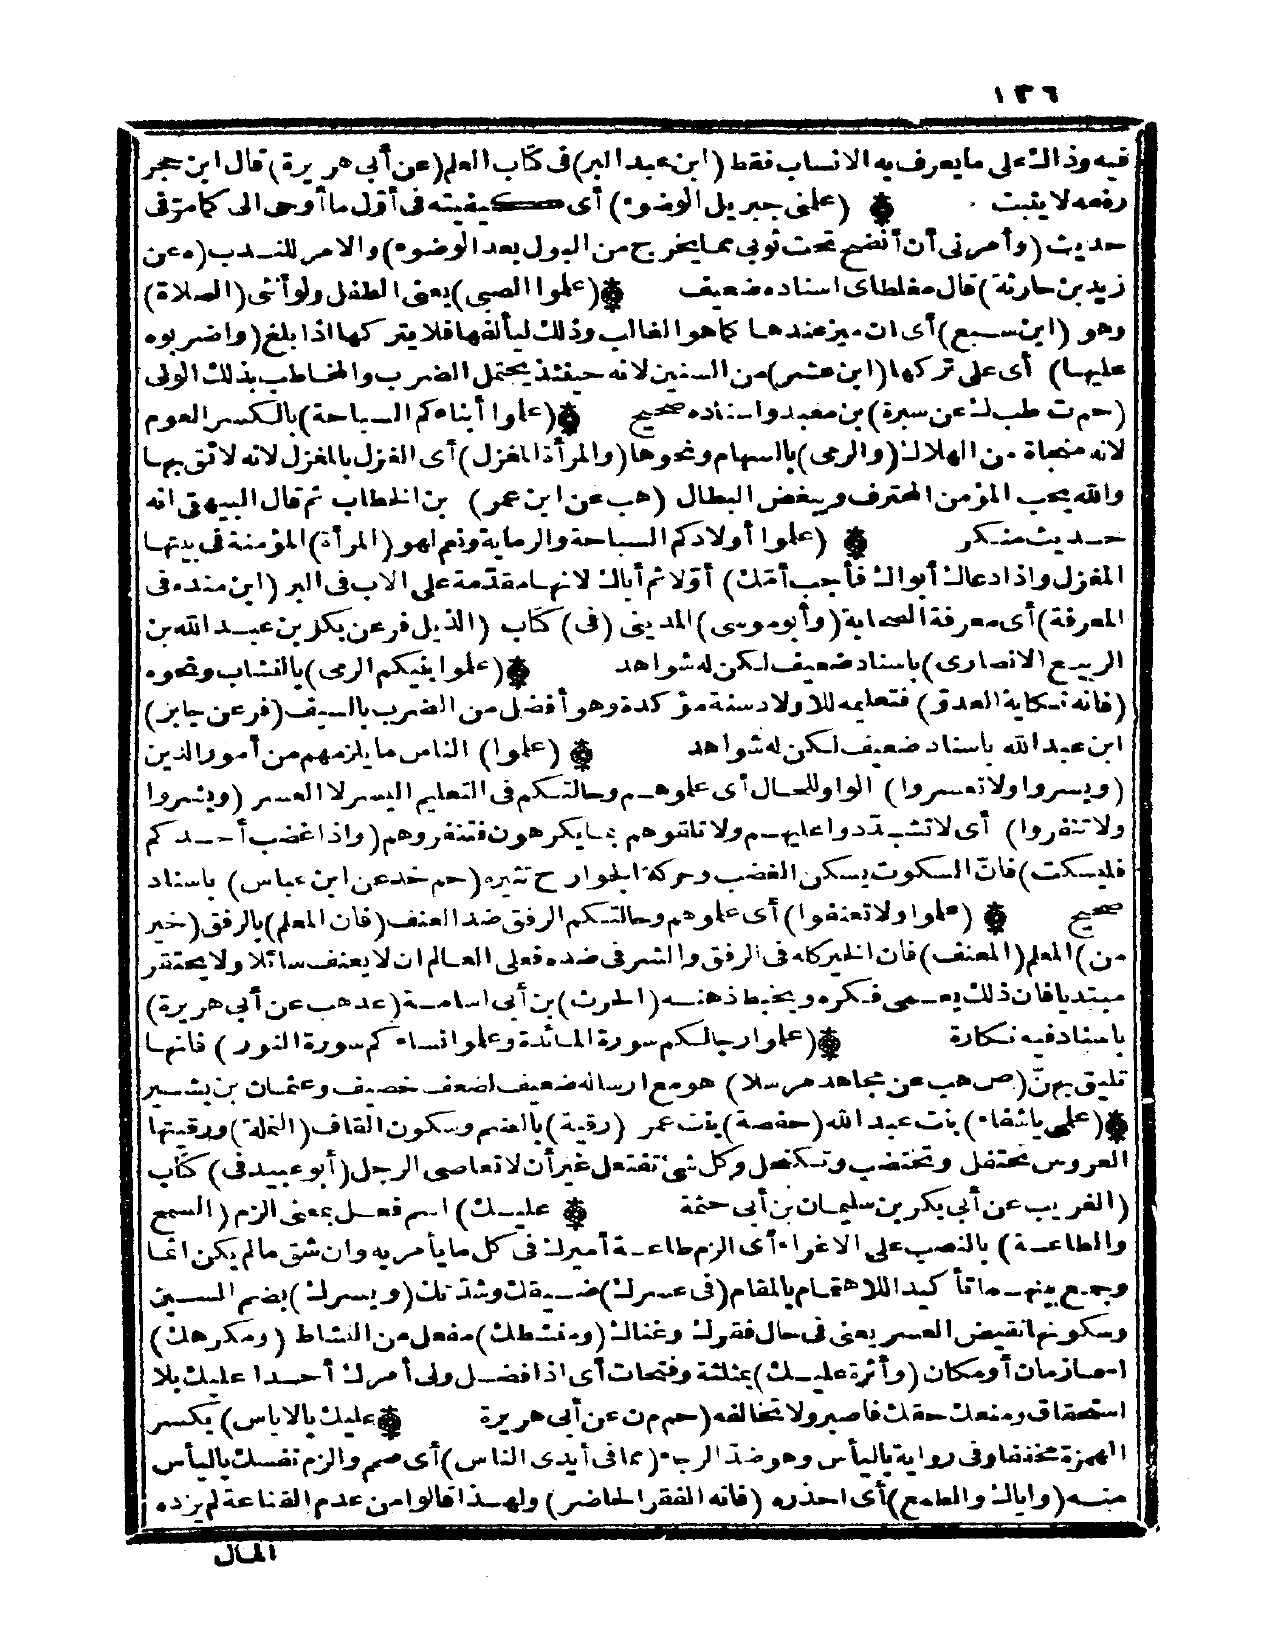 ١٣٦
فيه وذلك على ما يعرف به الانساب فقط (ابن عبد البر) فى كتاب العلم (عن أبى هريرة) قال ابن حجر
رفعه لا يثبت ۞ (علنى جبريل الوضوء) أى كيفيته فى أول ما أوحى الى كما مر فى
حديث (وأمرنى أن أنضح تحت ثوبى مما يخرج من البول بعد الوضوء) والامر للندب (ه عن
زيد بن حارثة) قال مغلطاى اسناده ضعيف ۞ (علوا الصبى) يعنى الطفل ولو أنثى (الصلاة)
وهو (ابن سبع) أى ان ميز عندها كما هو الغالب وذلك ليألفها فلا يتركها اذا بلغ (واضربوه
عليها) أى على تركها (ابن عشر) من السنين لانه حينئذ يحتمل الضرب والمخاطب بذلك الولى
(حم ت طب ك عن سبرة) بن معبد واسناده صحيح ۞ (علوا أبناءكم السباحة) بالكسر العوم
لانه منجاة من الهلاك (والرمى) بالسهام ونحوها (والمرأة المغزل) أى الغزل بالمغزل لانه لائق بها
والله يحب المؤمن المحترف ويبغض البطال (هب عن ابن عمر) بن الخطاب ثم قال البيهقى انه
حديث منكر ۞ (علوا أولادكم السباحة والرماية ونم لهو (المرأة) المؤمنة فى بيتها
المغزل واذا دعاك أبواك فأجب أمك) أولا ثم أباك لانها مقدمة على الاب فى البر (ابن منده فى
المعرفة) أى معرفة الصحابة (وأبو موسى) المدينى (فى) كتاب (الذيل فر عن بكر بن عبد الله بن
الربيع الانصارى) باسناد ضعيف لكن له شواهد ۞ (علوا بنيكم الرمى) بالنشاب ونحوه
(فانه نكاية العدو) فتعليمه للاولاد سنة مؤكدة وهو أفضل من الضرب بالسيف (فر عن جابر)
ابن عبد الله باسناد ضعيف لكن له شواهد ۞ (علوا) الناس ما يلزمهم من أمور الدين
(ويسروا ولا تعسروا) الواو للحال أى علوهم وحالتكم فى التعليم اليسر لا العسر (وبشروا
ولا تنفروا) أى لا تشددوا عليهم ولا تلقوهم بما يكرهون فتنفروهم (واذا غضب أحدكم
فليسكت) فان السكوت يسكن الغضب وحركة الجوارح تثيره (حم خد عن ابن عباس) باسناد
صحيح ۞ (علوا ولا تعنفوا) أى علوهم وحالتكم الرفق ضد العنف (فان المعلم) بالرفق (خير
من) المعلم (المعنف) فان الخير كله فى الرفق والشر فى ضده فعلى العالم ان لا يعنف سائلا ولا يحتقر
مبتديا فان ذلك يعمى فكره ويخبط ذهنه (الحرث) بن أبى اسامة (عد هب عن أبى هريرة)
باسناد فيه نكارة ۞ (علوا رجالكم سورة المائدة وعلوا نساءكم سورة النور) فانها
تليق بهن (ص هب عن مجاهد مرسلا) هو مع ارساله ضعيف اضعف خصيف وعتمان بن بشير
۞ (على يا شفاء) بنت عبد الله (حفصة) بنت عمر (رقية) بالضم وسكون القاف (النملة) ورقيتها
العروس تحتفل وتختضب وتكتحل وكل شئ تفتعل غير أن لا تعاصى الرجل (أبو عبيد فى) كتاب
(الغريب عن أبى بكر بن سليمان بن أبى حثمة ۞ عليك) اسم فعل بمعنى الزم (السمع
والطاعة) بالنصب على الاغراء أى الزم طاعة أميرك فى كل ما يأمر به وان شق ما لم يكن اثما
وجمع بينهما تأكيدا للاهتمام بالمقام (فى عسرك) ضيقك وشدتك (ويسرك) بضم السين
وسكونها نقيض العسر يعنى فى حال فقرك وغناك (ومنشطك) مفعل من النشاط (ومكرهك)
اسما زمان أو مكان (وأثرة عليك) بمثلثة وفتحات أى اذا فضل ولى أمرك أحدا عليك بلا
استحقاق ومنعك حقك فاصبر ولا تخالفه (حم م ن عن أبى هريرة ۞ عليك بالاياس) بكسر
الهمزة مخففا وفى رواية باليأس وهو ضد الرجاء (مما فى أيدى الناس) أى صمم والزم نفسك باليأس
منه (واياك والطمع) أى احذره (فانه الفقر الحاضر) ولهذا قالوا من عدم القناعة لم يزده
المال